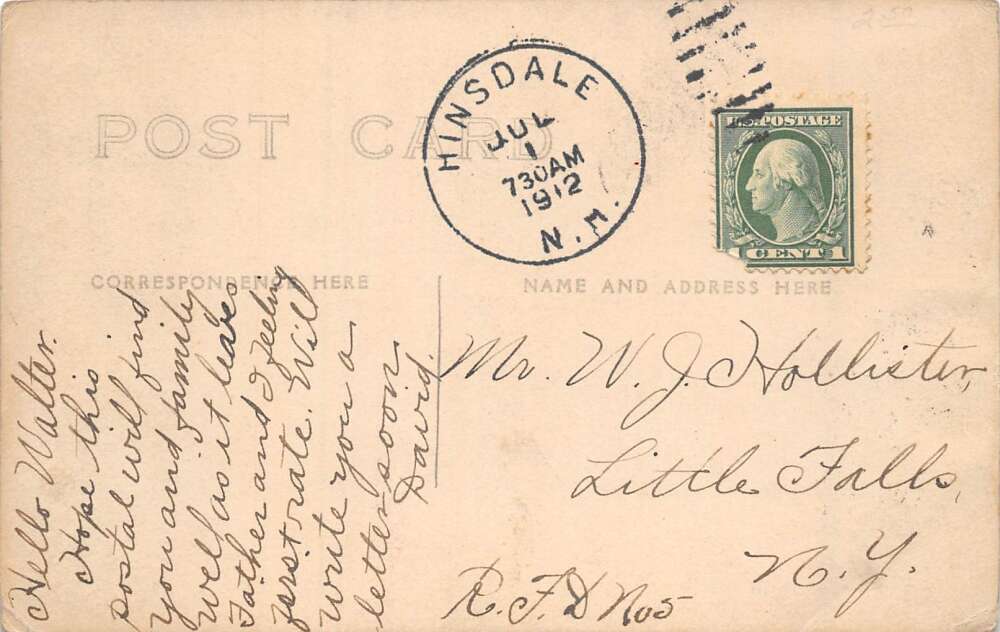 POST CARD
HINSDALE
JUL
1
730AM
1912
N.H.
U.S. POSTAGE
1 CENT 1
CORRESPONDENCE HERE
NAME AND ADDRESS HERE
Hello Walter.
Hope this
postal will find
you and family
well as it leaves
Father and I feeling
first rate. Will
write you a
letter soon
David.
Mr. W. J. Hollister,
Little Falls,
N. Y.
R. F. D No 5